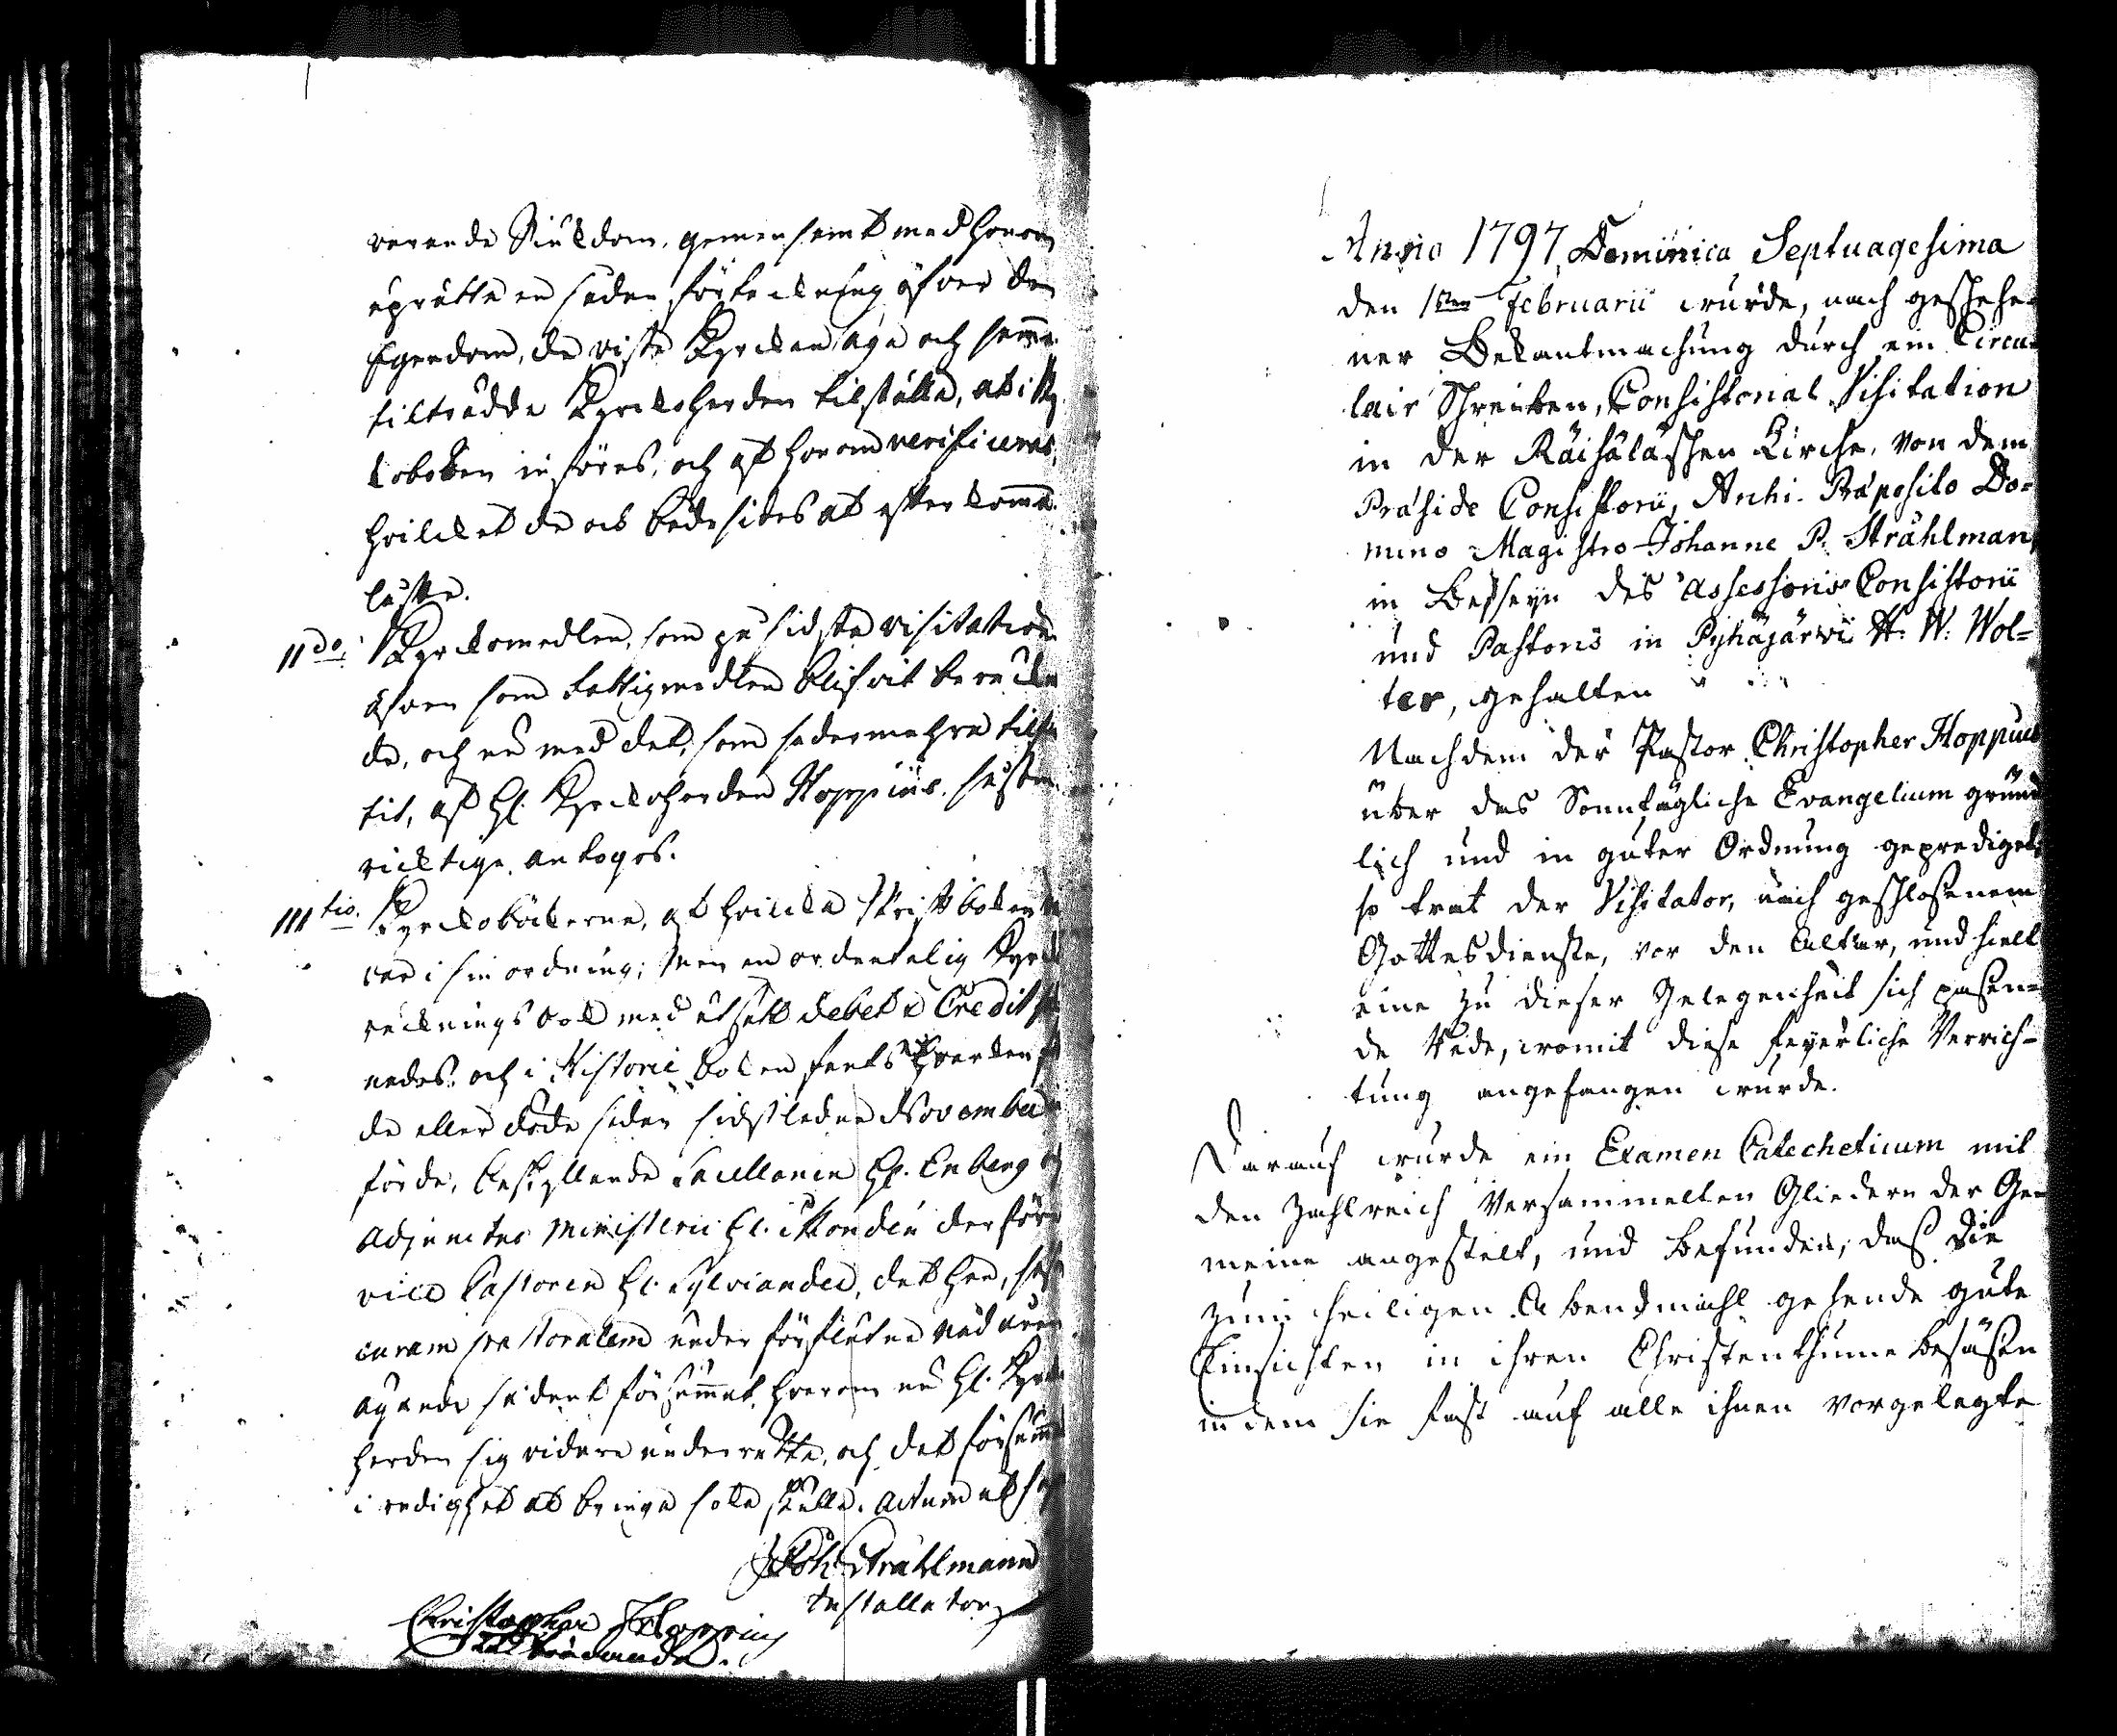 varande Siukdom, gemensamt med honom
uprätta en sådan förtekning öfver den
Egendom, de viste Kyrckan äga och samma
tilträdde Kyrckoherden tilställa, at i Ky
koboken införes, och af honom verificeras,
hvilcket de ock både sides at efterkomma
lofte.
IIdo. Kyrckomedlen, som på sidsta visitation
äfven som fattigmedlen blifvit beräckna
de, och nu med det, som sedermehra
tit, af H. Kyrckoherden Hoppius
ricktige antogos.
IIItio. Kyrckobökerne, af hvilcka Skriftboken
var i sin ordning; Men en ordentelig Kyrck
räcknings bok med utsatt debet & Credit
nades. och i Historie boken fants hvarken
de eller döde sedan sidstledne November
förde, beskyllande Sacellanen H. Enberg
Adjunctus Ministerii H. Kondén derföre
vice Pastoren H. Sylvander, det han,
curam pastoralem under förflutne nådåren
ägande sådant försummat, hvarom nu H. Kyrcko
herden sig vidare underrätta, och det försummade
i redighet at bringa söka skulle. Actum ut supra
Joh Strahlmann
Installator
Christopher Hoppius
Tilträdande.
Anno 1797, Dominica Septuagesima
den 1sten Februarii wurde, nach geschehe-
ner Bekantmachung durch ein Circu-
lair Schreiben, Consistorial Visitation
in der Räisäläschen Kirche, von dem
Präside Consistorii, Archi-Präposito Do-
mino Magistro Johanne P. Strahlman,
in Beyseyn des Assessoris Consistorii
und Pastoris in Pyhäjärwi H. W. Wol=
ter, gehalten
Nachdem der Pastor Christopher Hoppius
über das Sonntägliche Evangelium gründ
lich und in guter Ordnung geprediget,
so trat der Visitator, nach geschloßenem
Gottesdienste, vor den Altar, und hielt
eine zu dieser Gelegenheit sich paßen-
de Rede, womit diese feyerliche Verrich-
tung angefangen wurde.
Darauf wurde ein Examen Catecheticum mit
den zahlreich Versammelten Gliedern der Ge-
meine angestelt, und befunden, das die
zum heiligen Abendmahl gehende gute
Einsichten in ihren Christenthume besäßen
in dem sie fast auf alle ihnen vorgelegte